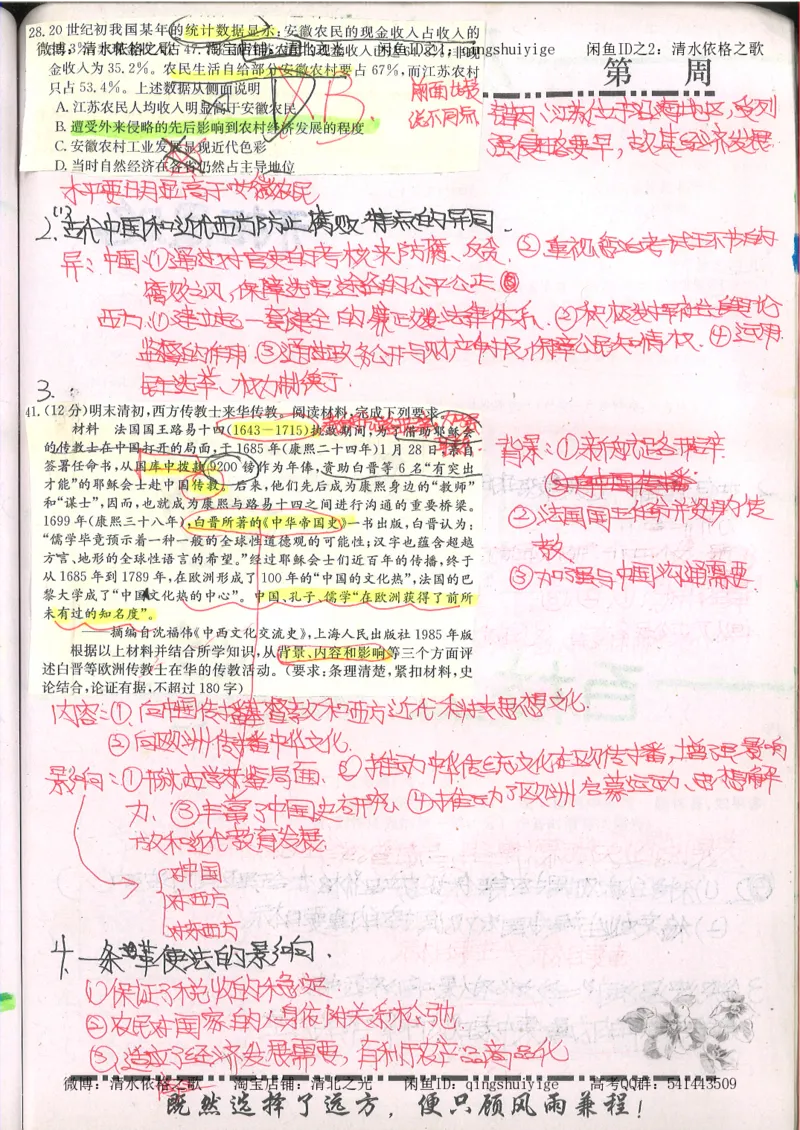 28. 20世纪初我国某年的统计数据显示:安徽农民的现金收入占收入的
微博:清水依格之歌 淘宝店铺:清北之光 闲鱼ID之1:qingshuiyige 闲鱼ID之2:清水依格之歌
金收入为35.2%。农民生活自给部分安徽农村要占67%,而江苏农村
只占53.4%。上述数据从侧面说明
A. 江苏农民人均收入明显高于安徽农民
B. 遭受外来侵略的先后影响到农村经济发展的程度
C. 安徽农村工业发展显现近代色彩
D. 当时自然经济在各省仍然占主导地位
第 周
B
错因:江苏位于沿海地区,受列
强侵略要早,故其经济发展
水平要明显高于安徽农民
2.(1)古代中国和近代西方防止腐败特点的异同.
异:中国:①通过对官吏的考核来防腐、反贪 ②重视
腐败之风,保障选官途径的公平公正
西方:①建立起一套健全的廉正法律体系.②积极发挥社会舆论
监督的作用 ③通过政务公开与财产申报,保障公民知情权.④运用
民主选举、权力制衡于
3.
41.(12分)明末清初,西方传教士来华传教。阅读材料,完成下列要求。
材料 法国国王路易十四(1643-1715)执政期间,为了借助耶稣会
的传教士在中国打开的局面,于1685年(康熙二十四年)1月28日亲自
签署任命书,从国库中拨款9200镑作为年俸,资助白晋等6名“有突出
才能”的耶稣会士赴中国传教。后来,他们先后成为康熙身边的“教师”
和“谋士”,因而,也就成为康熙与路易十四之间进行沟通的重要桥梁。
1699年(康熙三十八年),白晋所著的《中华帝国史》一书出版,白晋认为:
“儒学毕竟预示着一种一般的全球性道德观的可能性;汉字也蕴含超越
方言、地形的全球性语言的希望。”经过耶稣会士们近百年的传播,终于
从1685年到1789年,在欧洲形成了100年的“中国的文化热”,法国的巴
黎大学成了“中国文化热的中心”。中国、孔子、儒学“在欧洲获得了前所
未有过的知名度”。
——摘编自沈福伟《中西文化交流史》,上海人民出版社1985年版
根据以上材料并结合所学知识,从背景、内容和影响等三个方面评
述白晋等欧洲传教士在华的传教活动。(要求:条理清楚,紧扣材料,史
论结合,论证有据,不超过180字)
背景:①新航路开辟.
②法国国王任命并资助传
教
③加强与中国沟通需要
内容:①.向中国传播基督教和西方近代科技思想文化.
②向欧洲传播中华文化.
影响:①开拓 局面.②推动中华传统文化在欧洲传播,增强影响
力.③丰富了中国史研究.④推动了欧洲启蒙运动、思想解
放和近代教育发展.
对中国
对西方
对东西方
4.一条鞭法的影响.
①保证了税收的稳定
②农民对国家的人身依附关系松弛
③适应了经济发展需要,有利于农产品商品化
微博:清水依格之歌 淘宝店铺:清北之光 闲鱼ID:qingshuiyige 高考QQ群:541443509
既然选择了远方,便只顾风雨兼程!